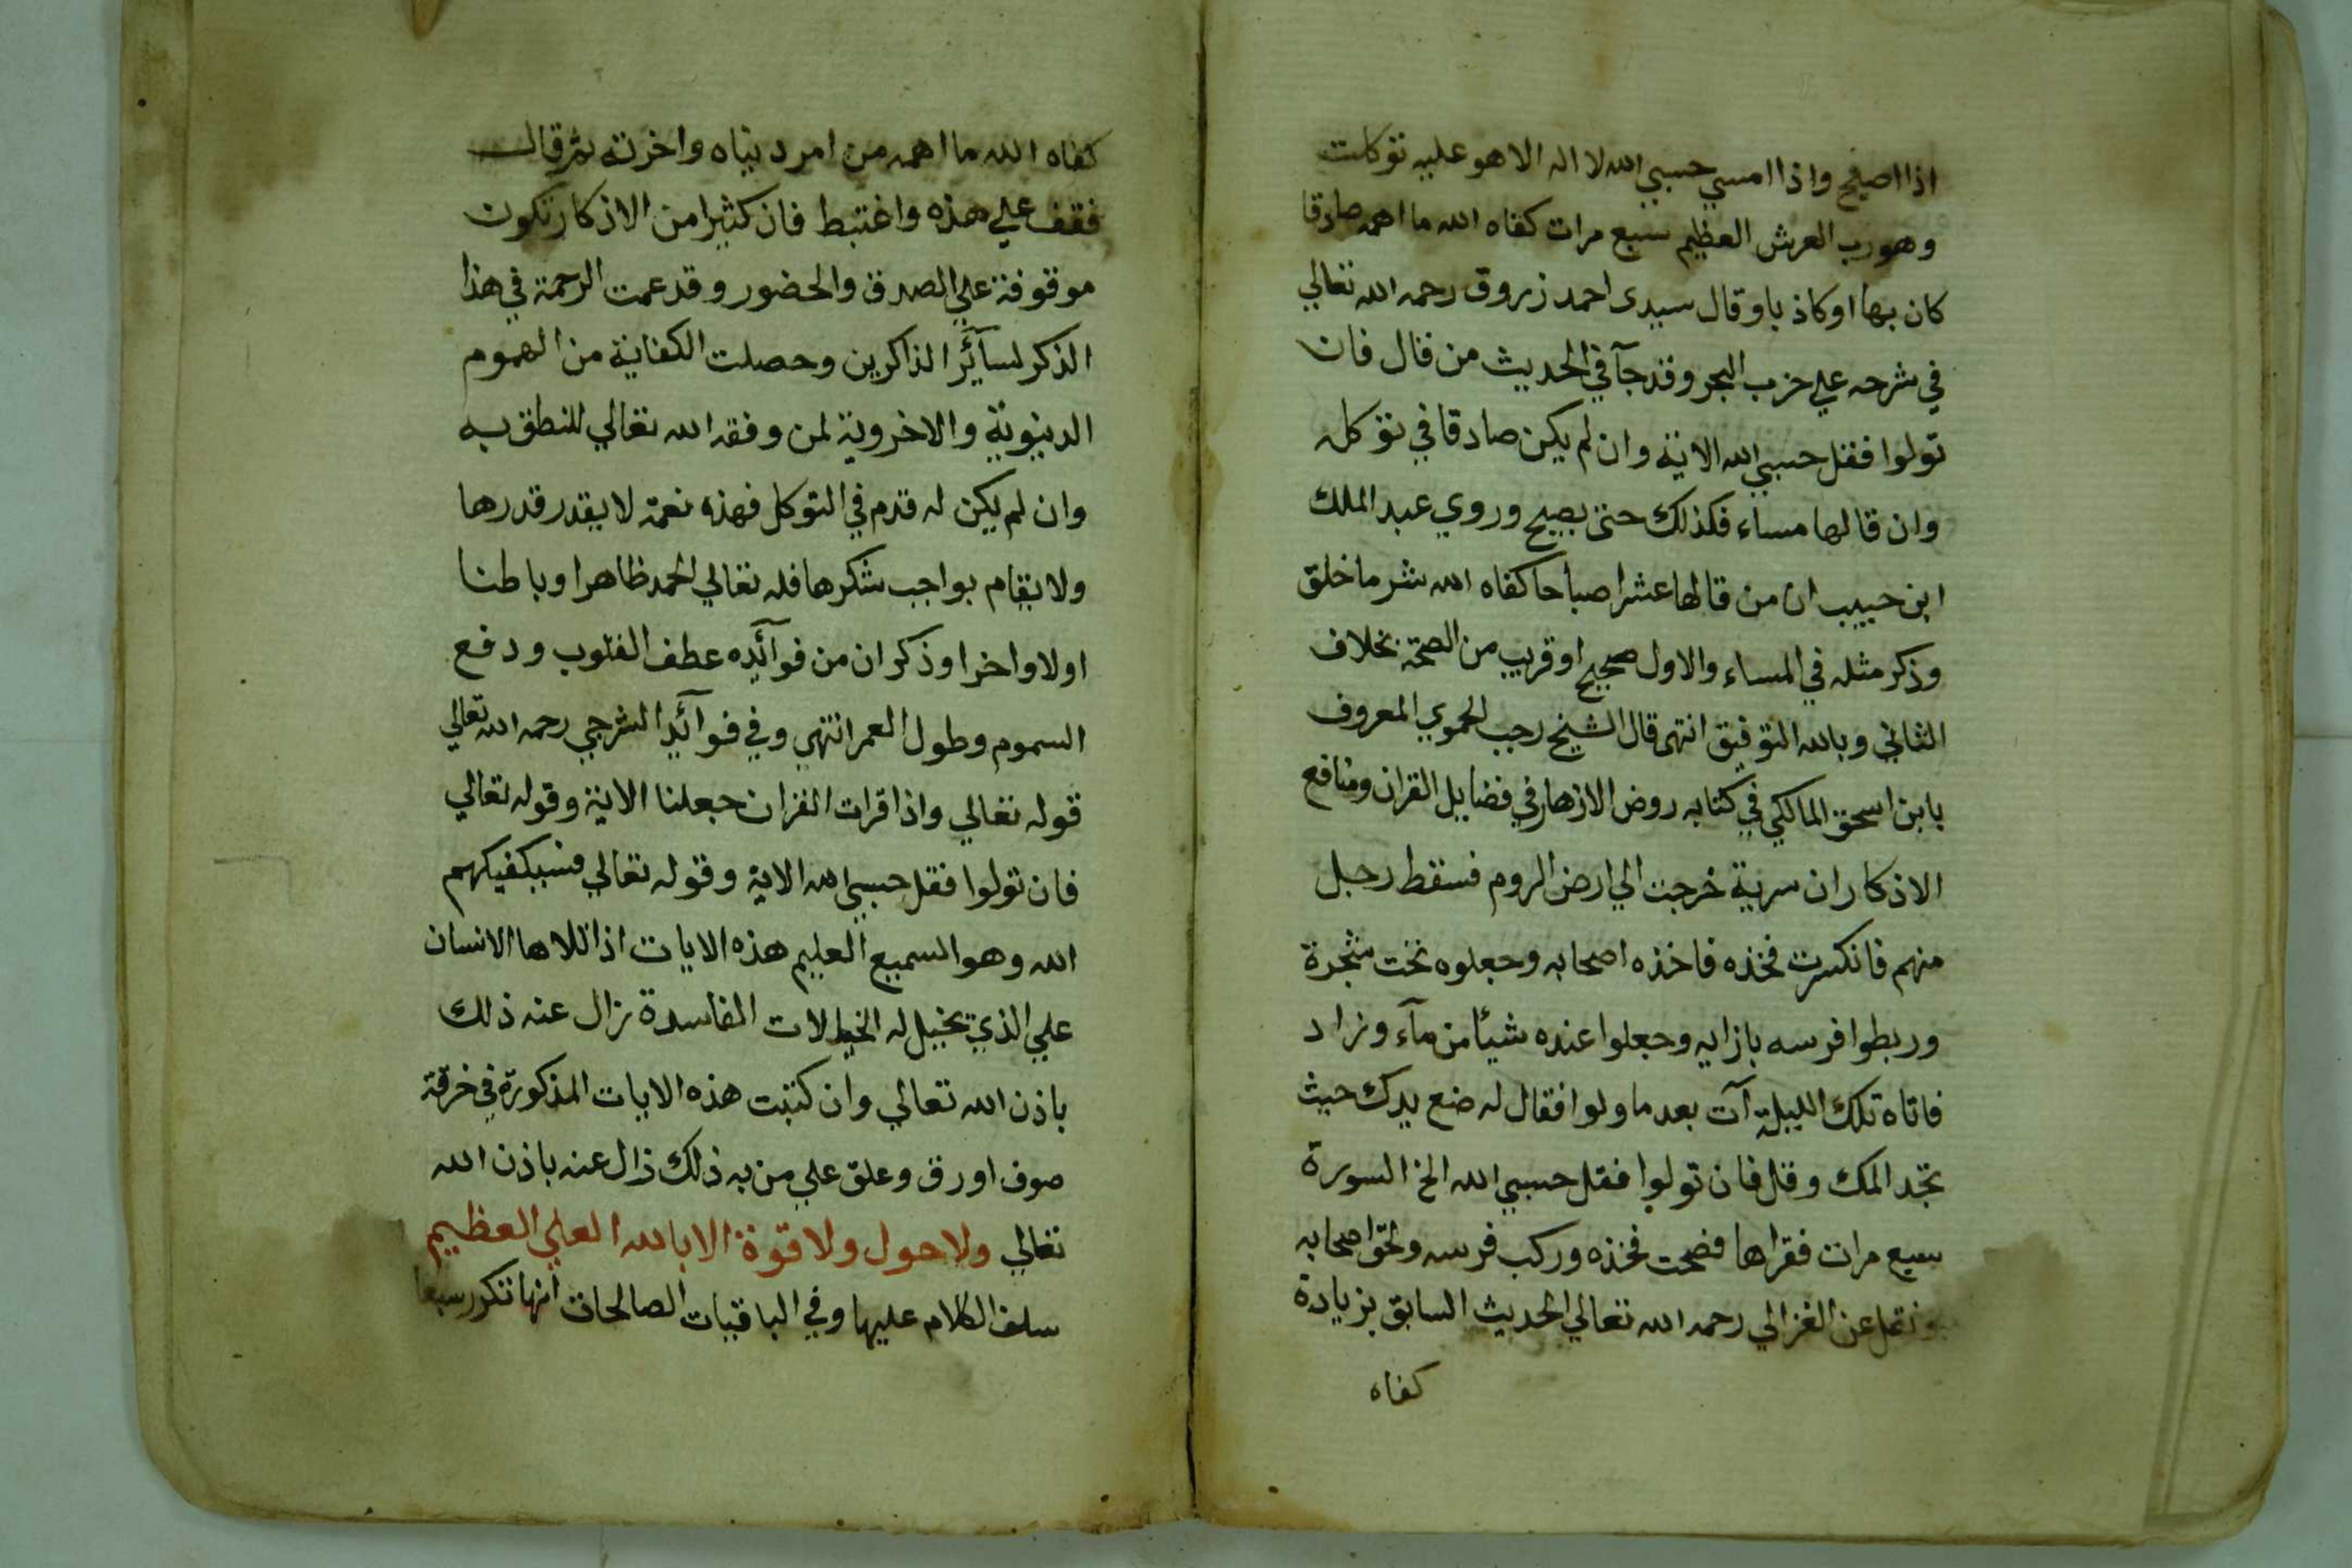 اذا اصبح واذا امسي حسبي الله لا اله الا هو عليه توكلت
وهو رب العرش العظيم سبع مرات كفاه الله ما اهمه صادقا
كان بها او كاذبا وقال سيدى احمد زروق رحمه الله تعالي
في شرحه علي حزب البحر وقد جآ في الحديث من قال فان
تولوا فقل حسبي الله الاية وان لم يكن صادقا في توكله
وان قالها مساء فكذلك حتى يصبح وروي عبد الملك
ابن حبيب ان من قالها عشرا صباحا كفاه الله شر ما خلق
وذكر مثله في المساء والاول صحيح او قريب من الصحة بخلاف
الثاني وبالله التوفيق انتهى قال الشيخ رجب الحموي المعروف
بابن اسحق المالكي في كتابه روض الازهار في فضايل القران ومنافع
الاذكار ان سرية خرجت الي ارض الروم فسقط رجل
منهم فانكسرت فخذه فاخذه اصحابه وجعلوه تحت شجرة
وربطوا فرسه بازايه وجعلوا عنده شيئا من مآء وزاد
فاتاه تلك الليلة آت بعد ما ولوا فقال له ضع يدك حيث
تجد المك وقل فان تولوا فقل حسبي الله الخ السورة
سبع مرات فقراها فصحت فخذه وركب فرسه ولحق اصحابه
ونقل عن الغزالي رحمه الله تعالي الحديث السابق بزيادة
كفاه
كفاه الله ما اهمه من امر دنياه واخرته ثم قال
فقف علي هذه واغتبط فان كثيرا من الاذكار تكون
موقوفة علي الصدق والحضور وقد عمت الرحمة في هذا
الذكر لسآئر الذاكرين وحصلت الكفاية من الهموم
الدنيوية والاخروية لمن وفقه الله تعالي للنطق به
وان لم يكن له قدم في التوكل فهذه نعمة لا يقدر قدرها
ولا يقام بواجب شكرها فلله تعالي الحمد ظاهرا وباطنا
اولا واخرا وذكر ان من فوآئده عطف القلوب ودفع
السموم وطول العمر انتهى وفي فوآئد الشرجي رحمه الله تعالي
قوله تعالي واذا قرات القران جعلنا الاية وقوله تعالي
فان تولوا فقل حسبي الله الاية وقوله تعالي فسيكفيكهم
الله وهو السميع العليم هذه الايات اذا تلاها الانسان
علي الذي تخيل له الخيالات الفاسدة زال عنه ذلك
باذن الله تعالي وان كتبت هذه الايات المذكورة في خرقة
صوف او رق وعلق علي من به ذلك زال عنه باذن الله
تعالي ولا حول ولا قوة الا بالله العلي العظيم
سلف الكلام عليها وفي الباقيات الصالحات انها تكرر سبعا